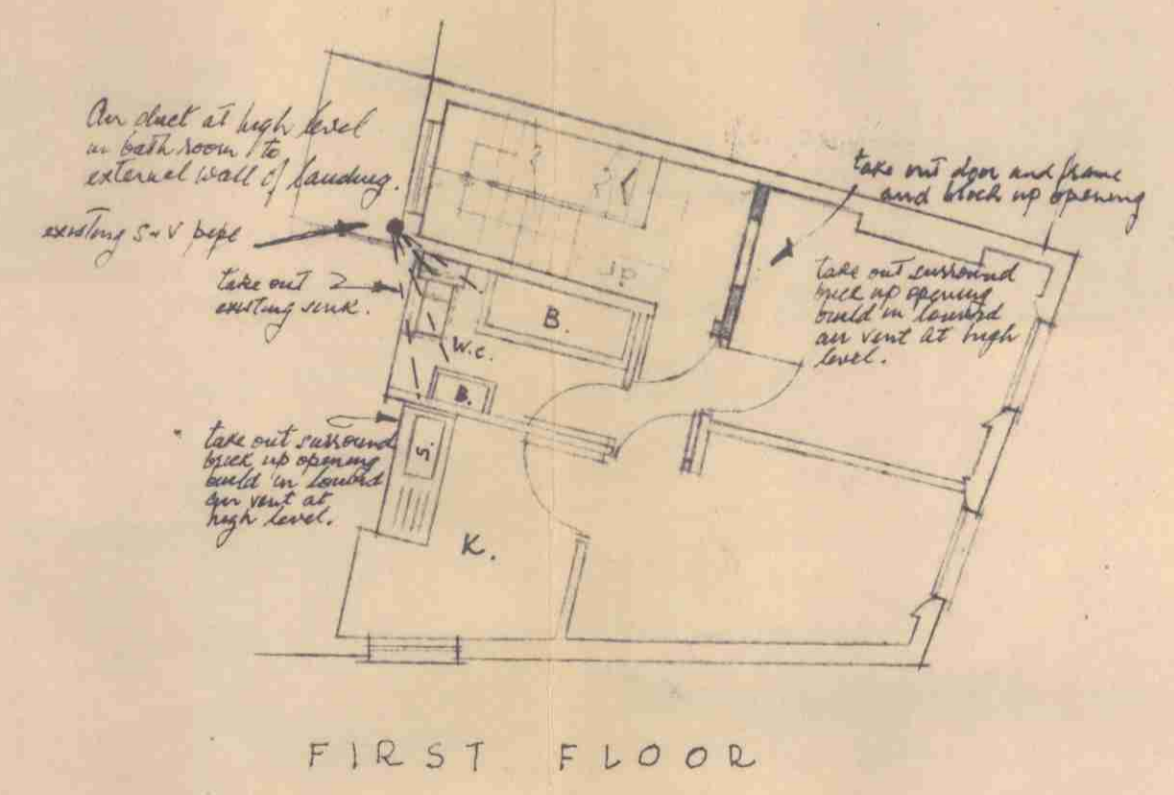 Air duct at high level
in bath room to
external wall of landing.
existing S+V pipe
take out
existing sink.
take out door and frame
and block up opening
take out surround
brick up opening
build in louvred
air vent at high
level.
up
B.
W.C.
B.
S.
take out surround
brick up opening
build in louvred
air vent at
high level.
K.
FIRST FLOOR